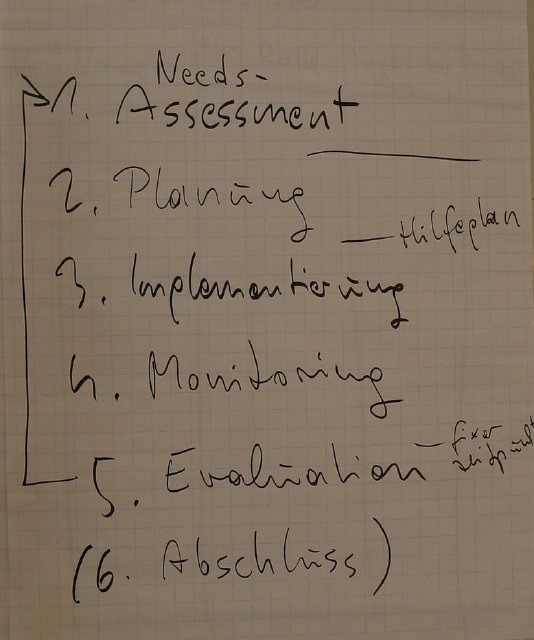 Needs-
1. Assessment
2. Planung
— Hilfeplan
3. Implementierung
4. Monitoring
5. Evaluation – fixer
Zeitpunkt
(6. Abschluss)